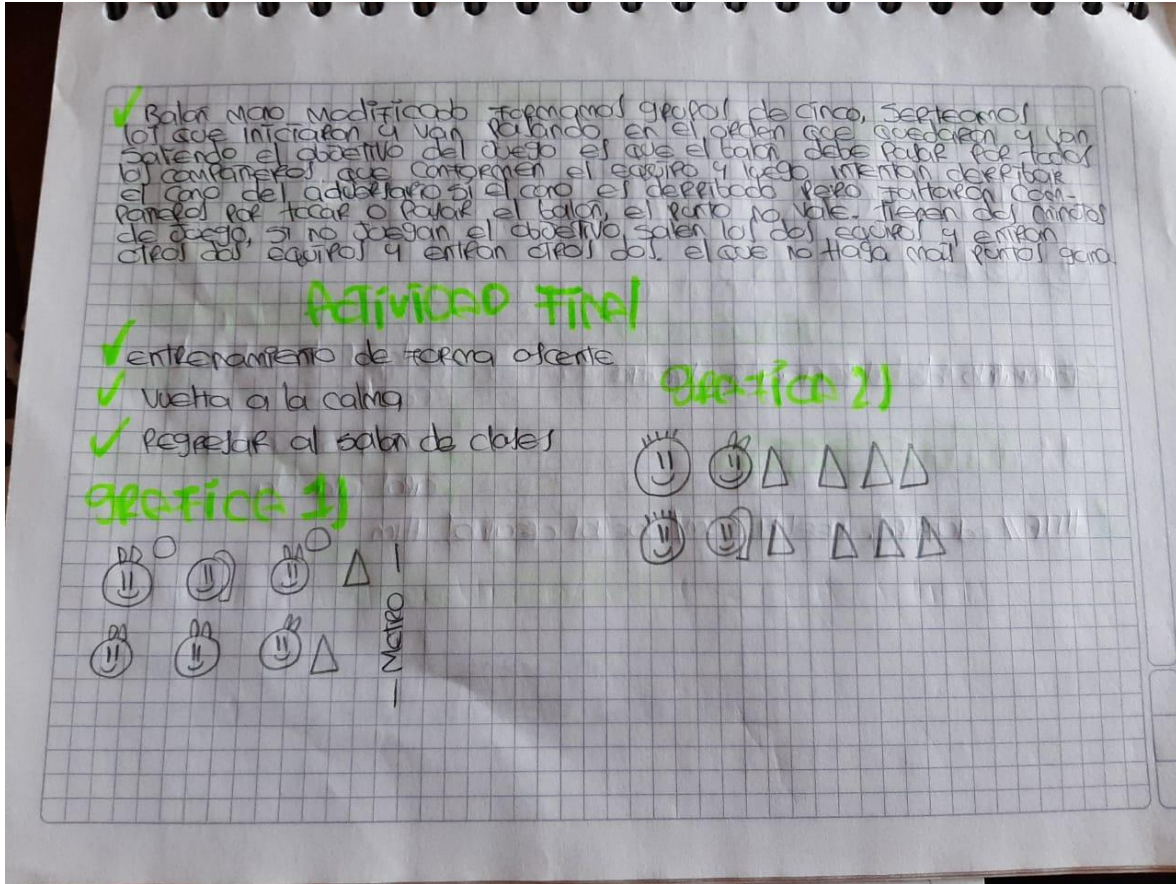 Balon mano modificado formamos grupos de cinco, sorteamos
los que iniciaron y van pasando en el orden que quedaron y van
saliendo el objetivo del juego es que el balon debe pasar por todos
los compañeros que conforman el equipo y luego intentan derribar
el cono del adversario si el cono es derribado pero faltaron com-
pañeros por tocar o pasar el balon, el punto no vale. tienen dos minutos
de juego, si no juegan el objetivo, salen los dos equipos y entran
otros dos equipos y entran otros dos. el que no haga mas puntos gana
Actividad Final
entrenamiento de forma
vuelta a la calma
Regresar al salon de clases
grafica 1)
grafica 2)
Metro